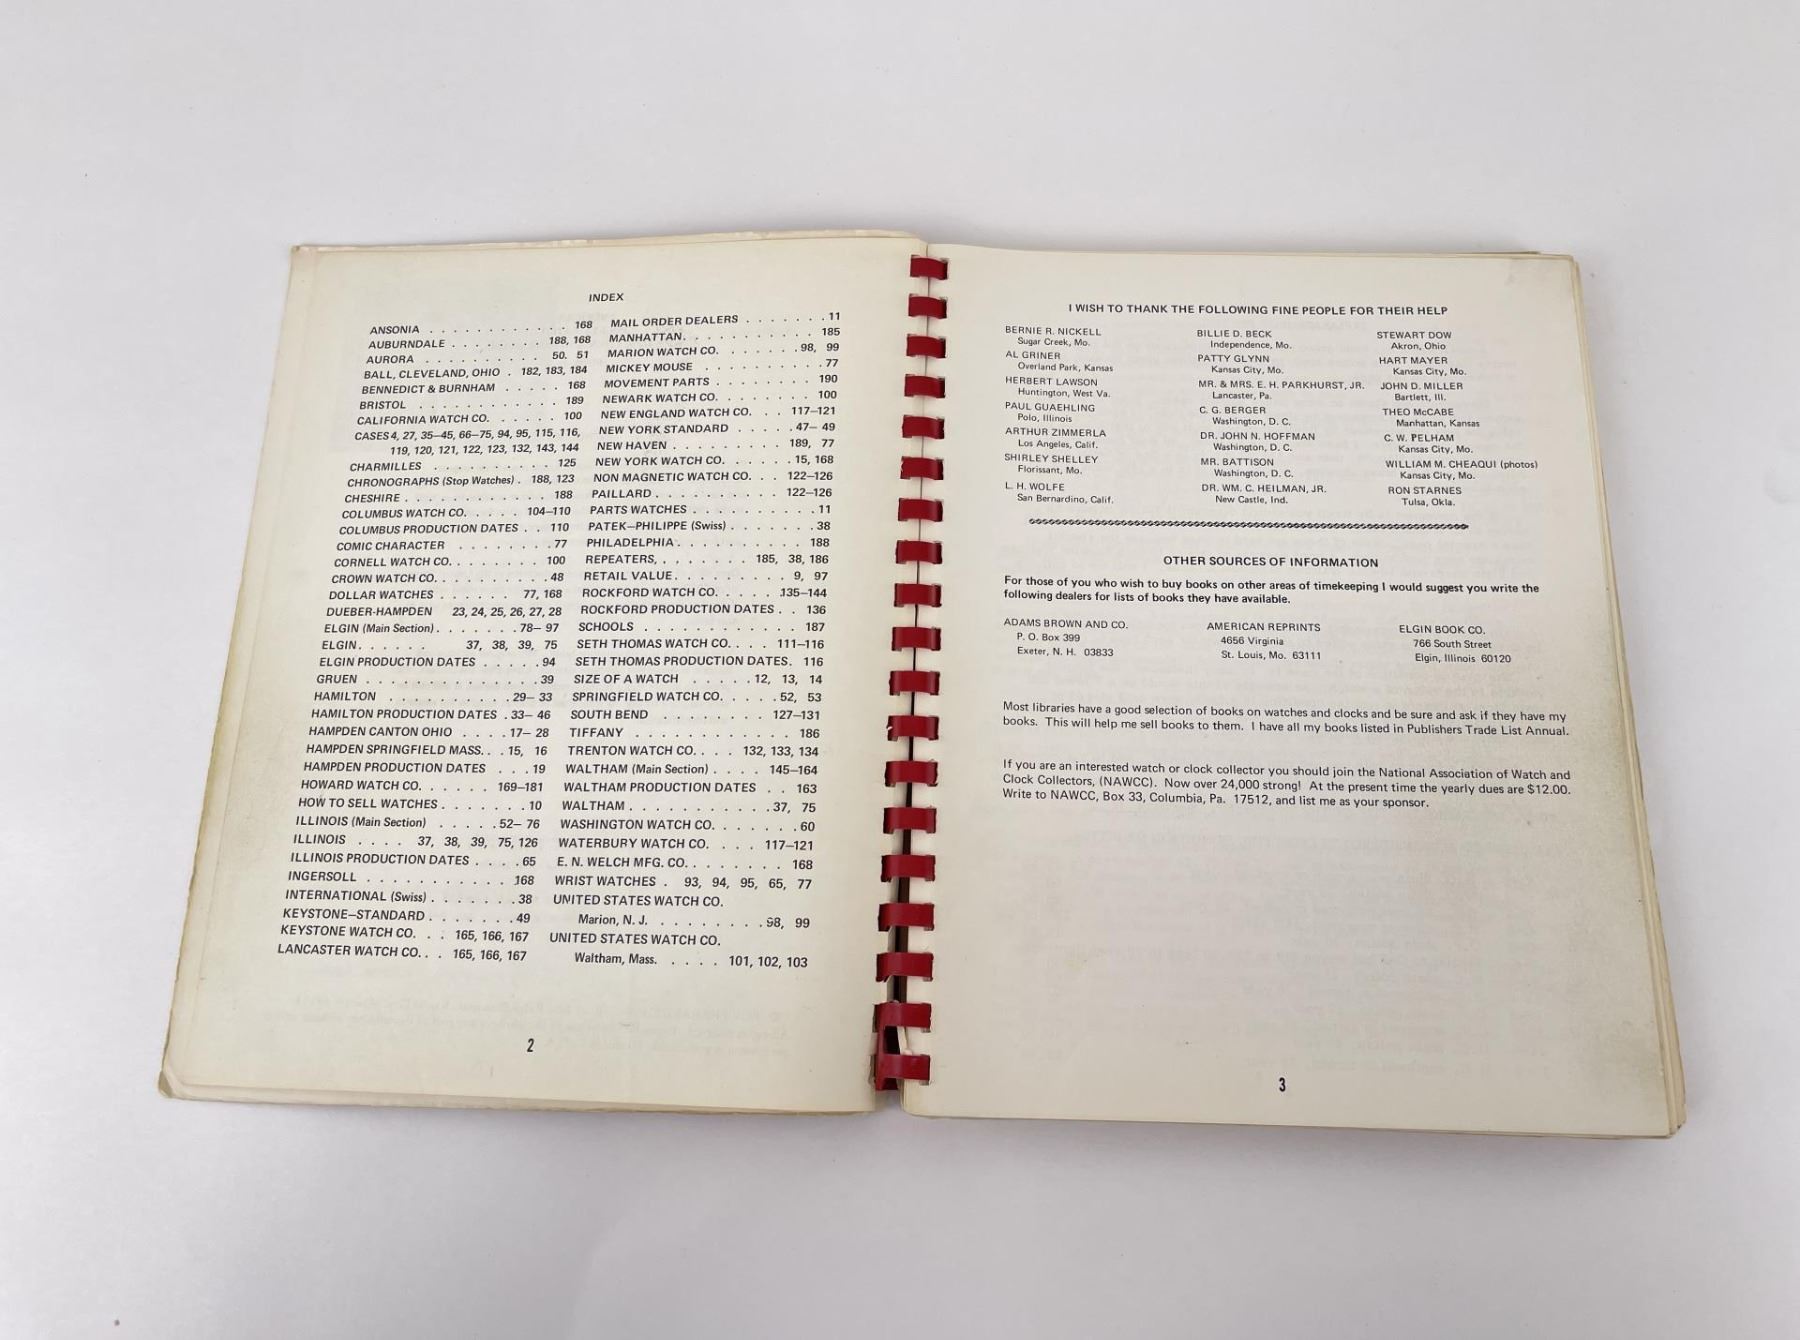 INDEX
ANSONIA . . . . . . . . . . . . 168
AUBURNDALE . . . . . . . . 188, 168
AURORA . . . . . . . . . . 50. 51
BALL, CLEVELAND, OHIO . 182, 183, 184
BENNEDICT & BURNHAM . . . . . 168
BRISTOL . . . . . . . . . . . . 189
CALIFORNIA WATCH CO. . . . . . . 100
CASES 4, 27, 35–45, 66–75, 94, 95, 115, 116,
119, 120, 121, 122, 123, 132, 143, 144
CHARMILLES . . . . . . . . . . 125
CHRONOGRAPHS (Stop Watches) . 188, 123
CHESHIRE . . . . . . . . . . . . 188
COLUMBUS WATCH CO. . . . . . 104–110
COLUMBUS PRODUCTION DATES . . 110
COMIC CHARACTER . . . . . . . . 77
CORNELL WATCH CO. . . . . . . . . 100
CROWN WATCH CO. . . . . . . . . . 48
DOLLAR WATCHES . . . . . . 77, 168
DUEBER-HAMPDEN 23, 24, 25, 26, 27, 28
ELGIN (Main Section) . . . . . . . 78– 97
ELGIN . . . . . . 37, 38, 39, 75
ELGIN PRODUCTION DATES . . . . . 94
GRUEN . . . . . . . . . . . . . . 39
HAMILTON . . . . . . . . . . 29– 33
HAMILTON PRODUCTION DATES . 33– 46
HAMPDEN CANTON OHIO . . . . 17– 28
HAMPDEN SPRINGFIELD MASS. . . 15, 16
HAMPDEN PRODUCTION DATES . . . 19
HOWARD WATCH CO. . . . . . . 169–181
HOW TO SELL WATCHES . . . . . . . 10
ILLINOIS (Main Section) . . . . . 52– 76
ILLINOIS . . . . 37, 38, 39, 75, 126
ILLINOIS PRODUCTION DATES . . . . 65
INGERSOLL . . . . . . . . . . . 168
INTERNATIONAL (Swiss) . . . . . . . 38
KEYSTONE–STANDARD . . . . . . . 49
KEYSTONE WATCH CO. . . 165, 166, 167
LANCASTER WATCH CO. . . 165, 166, 167
MAIL ORDER DEALERS . . . . . . . 11
MANHATTAN . . . . . . . . . . . 185
MARION WATCH CO. . . . . . . . 98, 99
MICKEY MOUSE . . . . . . . . . . 77
MOVEMENT PARTS . . . . . . . . . 190
NEWARK WATCH CO. . . . . . . . . 100
NEW ENGLAND WATCH CO. . . . 117–121
NEW YORK STANDARD . . . . . 47– 49
NEW HAVEN . . . . . . . . . 189, 77
NEW YORK WATCH CO. . . . . . . 15, 168
NON MAGNETIC WATCH CO. . . . 122–126
PAILLARD . . . . . . . . . . 122–126
PARTS WATCHES . . . . . . . . . . 11
PATEK–PHILIPPE (Swiss) . . . . . . . 38
PHILADELPHIA . . . . . . . . . . . 188
REPEATERS, . . . . . . . . 185, 38, 186
RETAIL VALUE . . . . . . . . . 9, 97
ROCKFORD WATCH CO. . . . . . 135–144
ROCKFORD PRODUCTION DATES . . 136
SCHOOLS . . . . . . . . . . . . 187
SETH THOMAS WATCH CO. . . . 111–116
SETH THOMAS PRODUCTION DATES. 116
SIZE OF A WATCH . . . . . 12, 13, 14
SPRINGFIELD WATCH CO. . . . . 52, 53
SOUTH BEND . . . . . . . . 127–131
TIFFANY . . . . . . . . . . . . 186
TRENTON WATCH CO. . . . 132, 133, 134
WALTHAM (Main Section) . . . . 145–164
WALTHAM PRODUCTION DATES . . 163
WALTHAM . . . . . . . . . . . 37, 75
WASHINGTON WATCH CO. . . . . . . . 60
WATERBURY WATCH CO. . . . . 117–121
E. N. WELCH MFG. CO. . . . . . . . 168
WRIST WATCHES . 93, 94, 95, 65, 77
UNITED STATES WATCH CO.
Marion, N. J. . . . . . . . . . 98, 99
UNITED STATES WATCH CO.
Waltham, Mass. . . . . 101, 102, 103
2
I WISH TO THANK THE FOLLOWING FINE PEOPLE FOR THEIR HELP
BERNIE R. NICKELL
Sugar Creek, Mo.
AL GRINER
Overland Park, Kansas
HERBERT LAWSON
Huntington, West Va.
PAUL GUAEHLING
Polo, Illinois
ARTHUR ZIMMERLA
Los Angeles, Calif.
SHIRLEY SHELLEY
Florissant, Mo.
L. H. WOLFE
San Bernardino, Calif.
BILLIE D. BECK
Independence, Mo.
PATTY GLYNN
Kansas City, Mo.
MR. & MRS. E. H. PARKHURST, JR.
Lancaster, Pa.
C. G. BERGER
Washington, D. C.
DR. JOHN N. HOFFMAN
Washington, D. C.
MR. BATTISON
Washington, D. C.
DR. WM. C. HEILMAN, JR.
New Castle, Ind.
STEWART DOW
Akron, Ohio
HART MAYER
Kansas City, Mo.
JOHN D. MILLER
Bartlett, Ill.
THEO McCABE
Manhattan, Kansas
C. W. PELHAM
Kansas City, Mo.
WILLIAM M. CHEAQUI (photos)
Kansas City, Mo.
RON STARNES
Tulsa, Okla.
OTHER SOURCES OF INFORMATION
For those of you who wish to buy books on other areas of timekeeping I would suggest you write the
following dealers for lists of books they have available.
ADAMS BROWN AND CO.
P. O. Box 399
Exeter, N. H. 03833
AMERICAN REPRINTS
4656 Virginia
St. Louis, Mo. 63111
ELGIN BOOK CO.
766 South Street
Elgin, Illinois 60120
Most libraries have a good selection of books on watches and clocks and be sure and ask if they have my
books. This will help me sell books to them. I have all my books listed in Publishers Trade List Annual.
If you are an interested watch or clock collector you should join the National Association of Watch and
Clock Collectors, (NAWCC). Now over 24,000 strong! At the present time the yearly dues are $12.00.
Write to NAWCC, Box 33, Columbia, Pa. 17512, and list me as your sponsor.
3